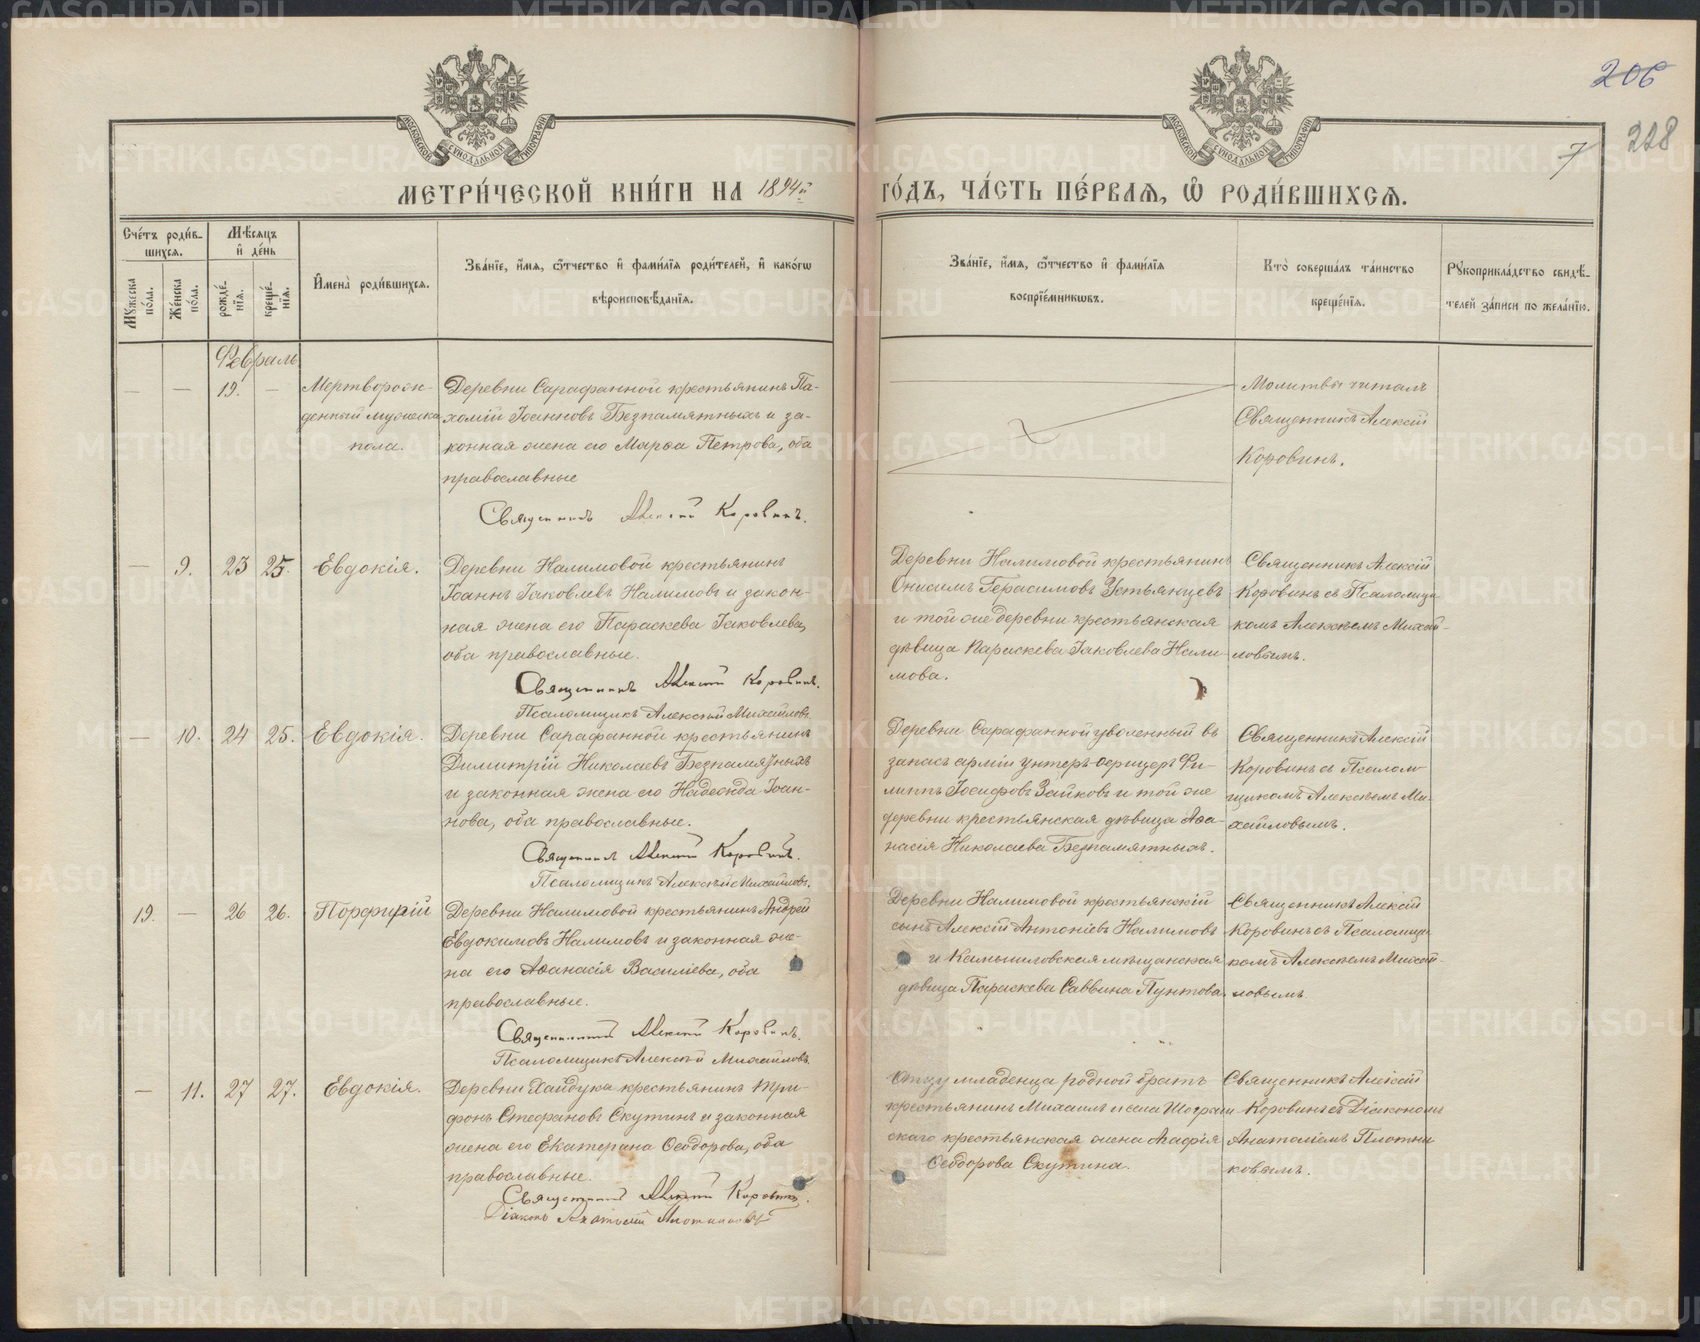 206
228
7
МЕТРИ́ЧЕСКОЙ КНИ́ГИ НА 1894й ГО́ДЪ, ЧА́СТЬ ПЕ́РВАѦ, Ѡ РОДИ́ВШИХСѦ.
Сче́тъ роди́в-
шихсѧ.
Мѣ́сѧцъ
и҆ де́нь
Мꙋ́жеска по́ла.
Же́нска по́ла.
рожде́-
нїѧ.
креще́-
нїѧ.
И҆мена̀ роди́вшихсѧ.
Зва́нїе, и҆́мѧ, ѻ҆́тчество и҆ фами́лїѧ роди́телей, и҆ како́гѡ
вѣроисповѣ́данїѧ.
Зва́нїе, и҆́мѧ, ѻ҆́тчество и҆ фами́лїѧ
воспрїе́мникѡвъ.
Кто̀ соверша́лъ та́инство
креще́нїѧ.
Рꙋкоприкла́дство свидѣ́-
телей за́писи по жела́нїю.
Февраль
— — 19. —
Мертворож-
денный мужеска
пола.
Деревни Сарафанной крестьянинъ Па-
хомій Іоанновъ Безпамятныхъ и за-
конная жена его Марѳа Петрова, оба
православные
Священникъ Алексій Коровинъ.
Молитвы читалъ
Священникъ Алексій
Коровинъ.
— 9. 23 25. Евдокія.
Деревни Налимовой крестьянинъ
Іоаннъ Іаковлевъ Налимовъ и закон-
ная жена его Параскева Іаковлева,
оба православные.
Священникъ Алексій Коровинъ.
Псаломщикъ Алексѣй Михайловъ.
Деревни Налимовой крестьянинъ
Онисимъ Герасимовъ Устьянцевъ
и той же деревни крестьянская
дѣвица Параскева Іаковлева Нали-
мова.
Священникъ Алексій
Коровинъ съ Псаломщи-
комъ Алексѣемъ Михай-
ловымъ.
— 10. 24 25. Евдокія.
Деревни Сарафанной крестьянинъ
Димитрій Николаевъ Безпамятныхъ
и законная жена его Надежда Іоан-
нова, оба православные.
Священникъ Алексій Коровинъ.
Псаломщикъ Алексѣй Михайловъ.
Деревни Сарафанной уволенный въ
запасъ арміи унтеръ-офицеръ Фи-
липпъ Іосифовъ Зайковъ и той же
деревни крестьянская дѣвица Аѳа-
насія Николаева Безпамятныхъ.
Священникъ Алексій
Коровинъ съ Псалом-
щикомъ Алексѣемъ Ми-
хайловымъ.
19. — 26 26. Порфирій
Деревни Налимовой крестьянинъ Андрей
Евдокимовъ Налимовъ и законная же-
на его Аѳанасія Василіева, оба
православные.
Священникъ Алексій Коровинъ.
Псаломщикъ Алексѣй Михайловъ
Деревни Налимовой крестьянскій
сынъ Алексій Антоніевъ Налимовъ
и Камышловская мѣщанская
дѣвица Параскева Саввина Пунтова.
Священникъ Алексій
Коровинъ съ Псаломщи-
комъ Алексѣемъ Михай-
ловымъ
— 11. 27 27. Евдокія.
Деревни Хайдука крестьянинъ Три-
фонъ Стефановъ Скутинъ и законная
жена его Екатерина Ѳеодорова, оба
православные.
Священникъ Алексій Коровинъ.
Діаконъ Анатолій Плотниковъ
Отцу младенца родной братъ
крестьянинъ Михаилъ и села
скаго крестьянская жена Агафія
Ѳеодорова Скутина.
Священникъ Алексій
Коровинъ съ Діакономъ
Анатоліемъ Плотни-
ковымъ.